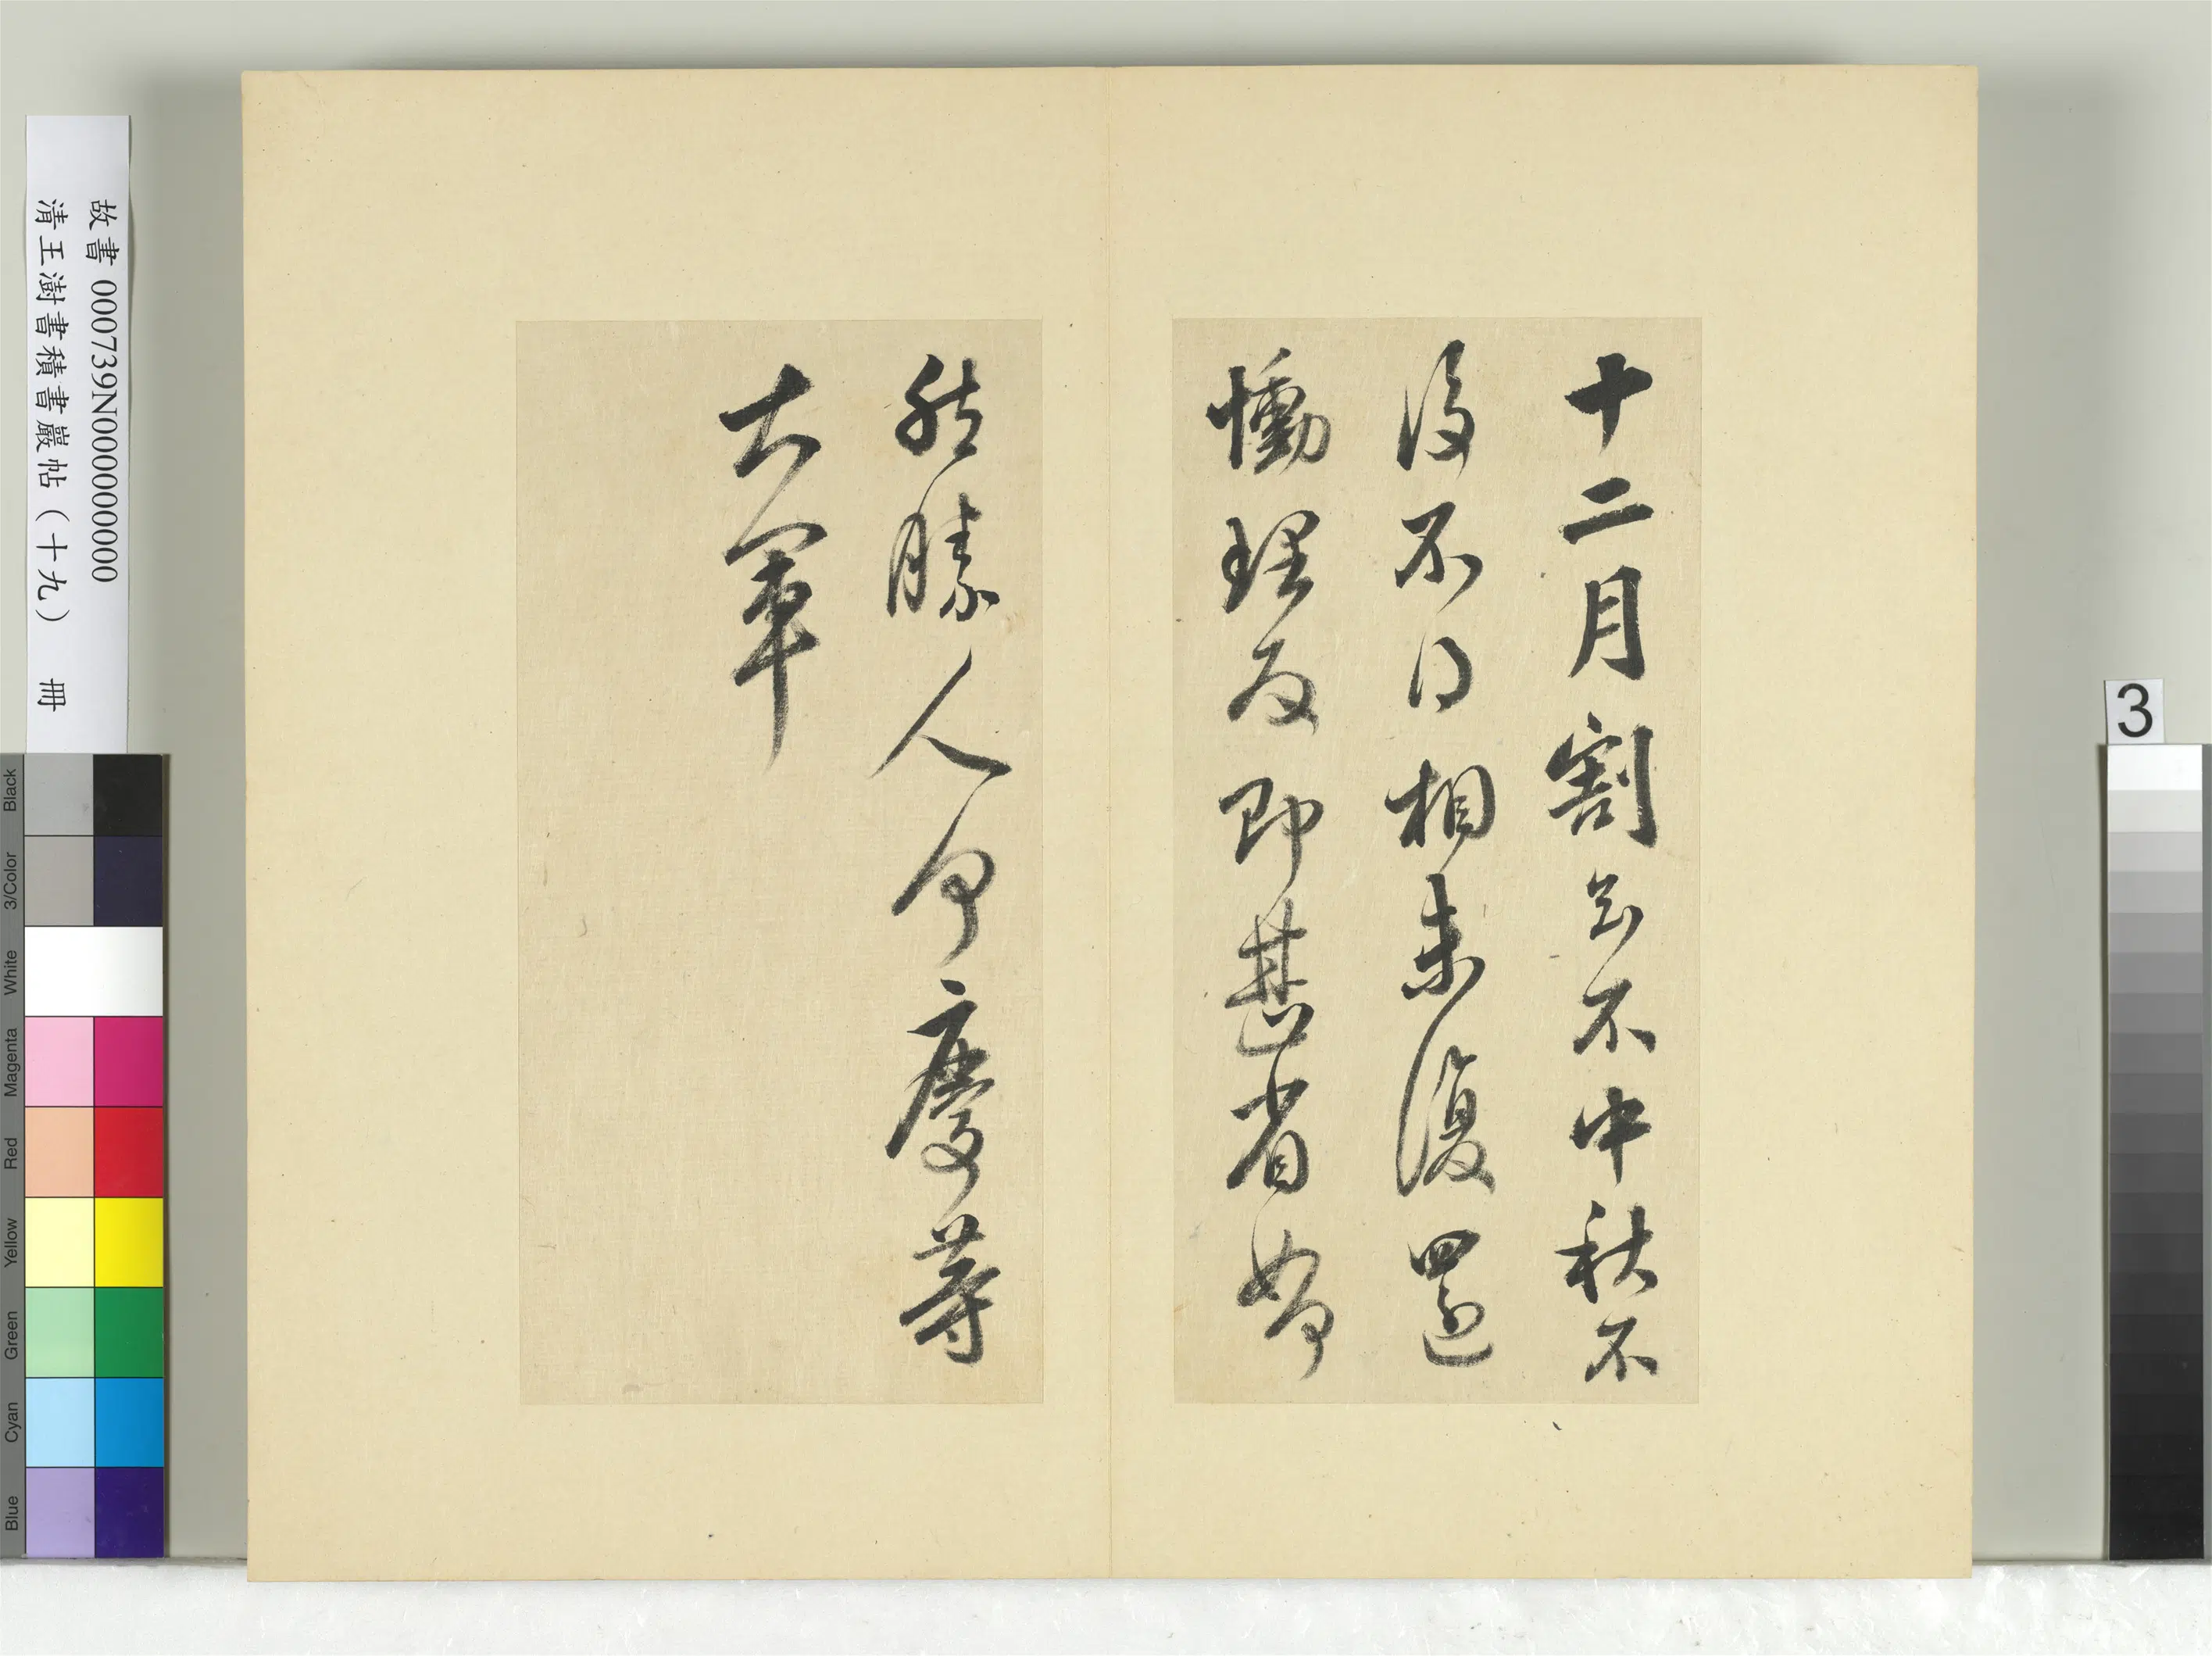 十二月割至不中秋不
復不得相未復還
慟理為即甚省如何
然勝人何慶等
大軍
故書 000739N000000000
清王澍書積書巖帖（十九） 冊
Blue Cyan Green Yellow Red Magenta White 3/Color Black
3